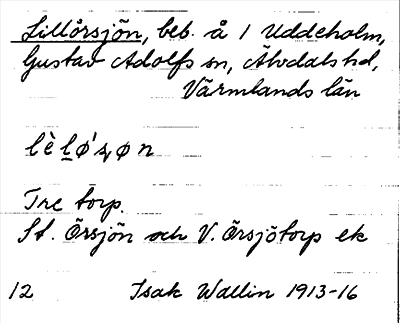 Lillörsjön, beb. å 1 Uddeholm,
Gustav Adolfs sn, Älvdals hd,
Värmlands län
Tre torp.
St. Örsjön och V. Örsjötorp ek
12 Isak Wallin 1913-16